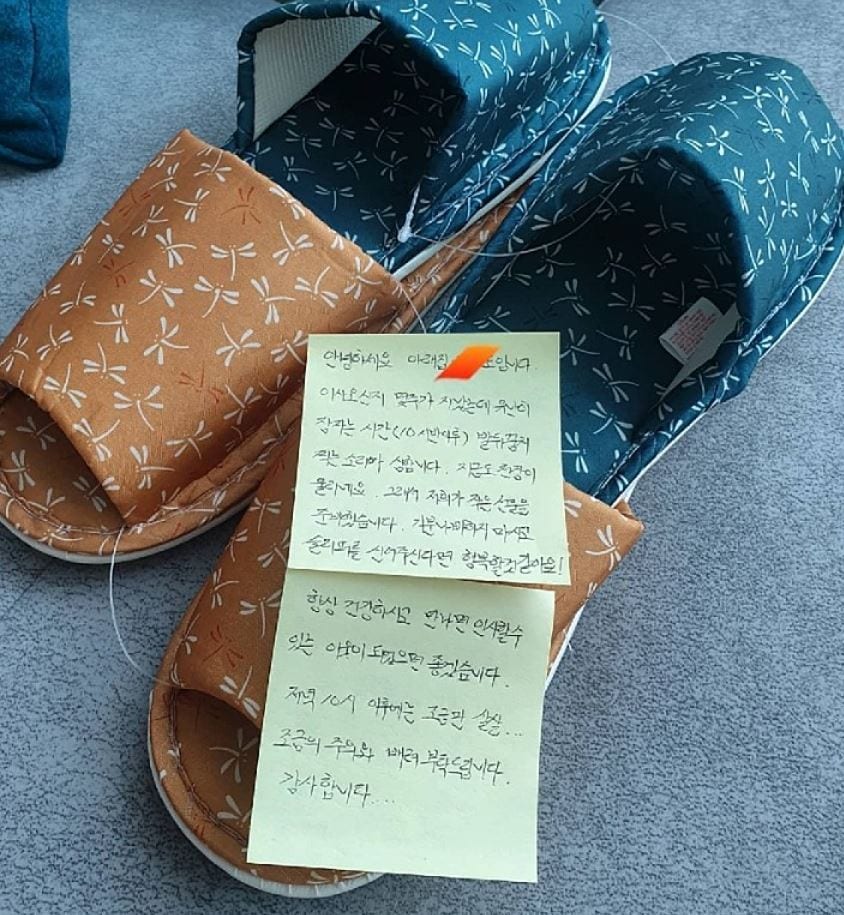 안녕하세요 아래집 도입니다.
이사오신지 몇주가 지났는데 유난히
잠자는 시간(10시반이후) 발뒤꿈치
찍는 소리가 심합니다. 지금도 천장이
울리네요. 그래서 저희가 작은 선물을
준비했습니다. 기분나빠하지 마시고
슬리퍼를 신어주신다면 행복할것같아요!
항상 건강하시고 만나면 인사할수
있는 이웃이 되었으면 좋겠습니다.
저녁 10시 이후에는 조금만 살살...
조금의 주의와 배려 부탁드립니다.
감사합니다....